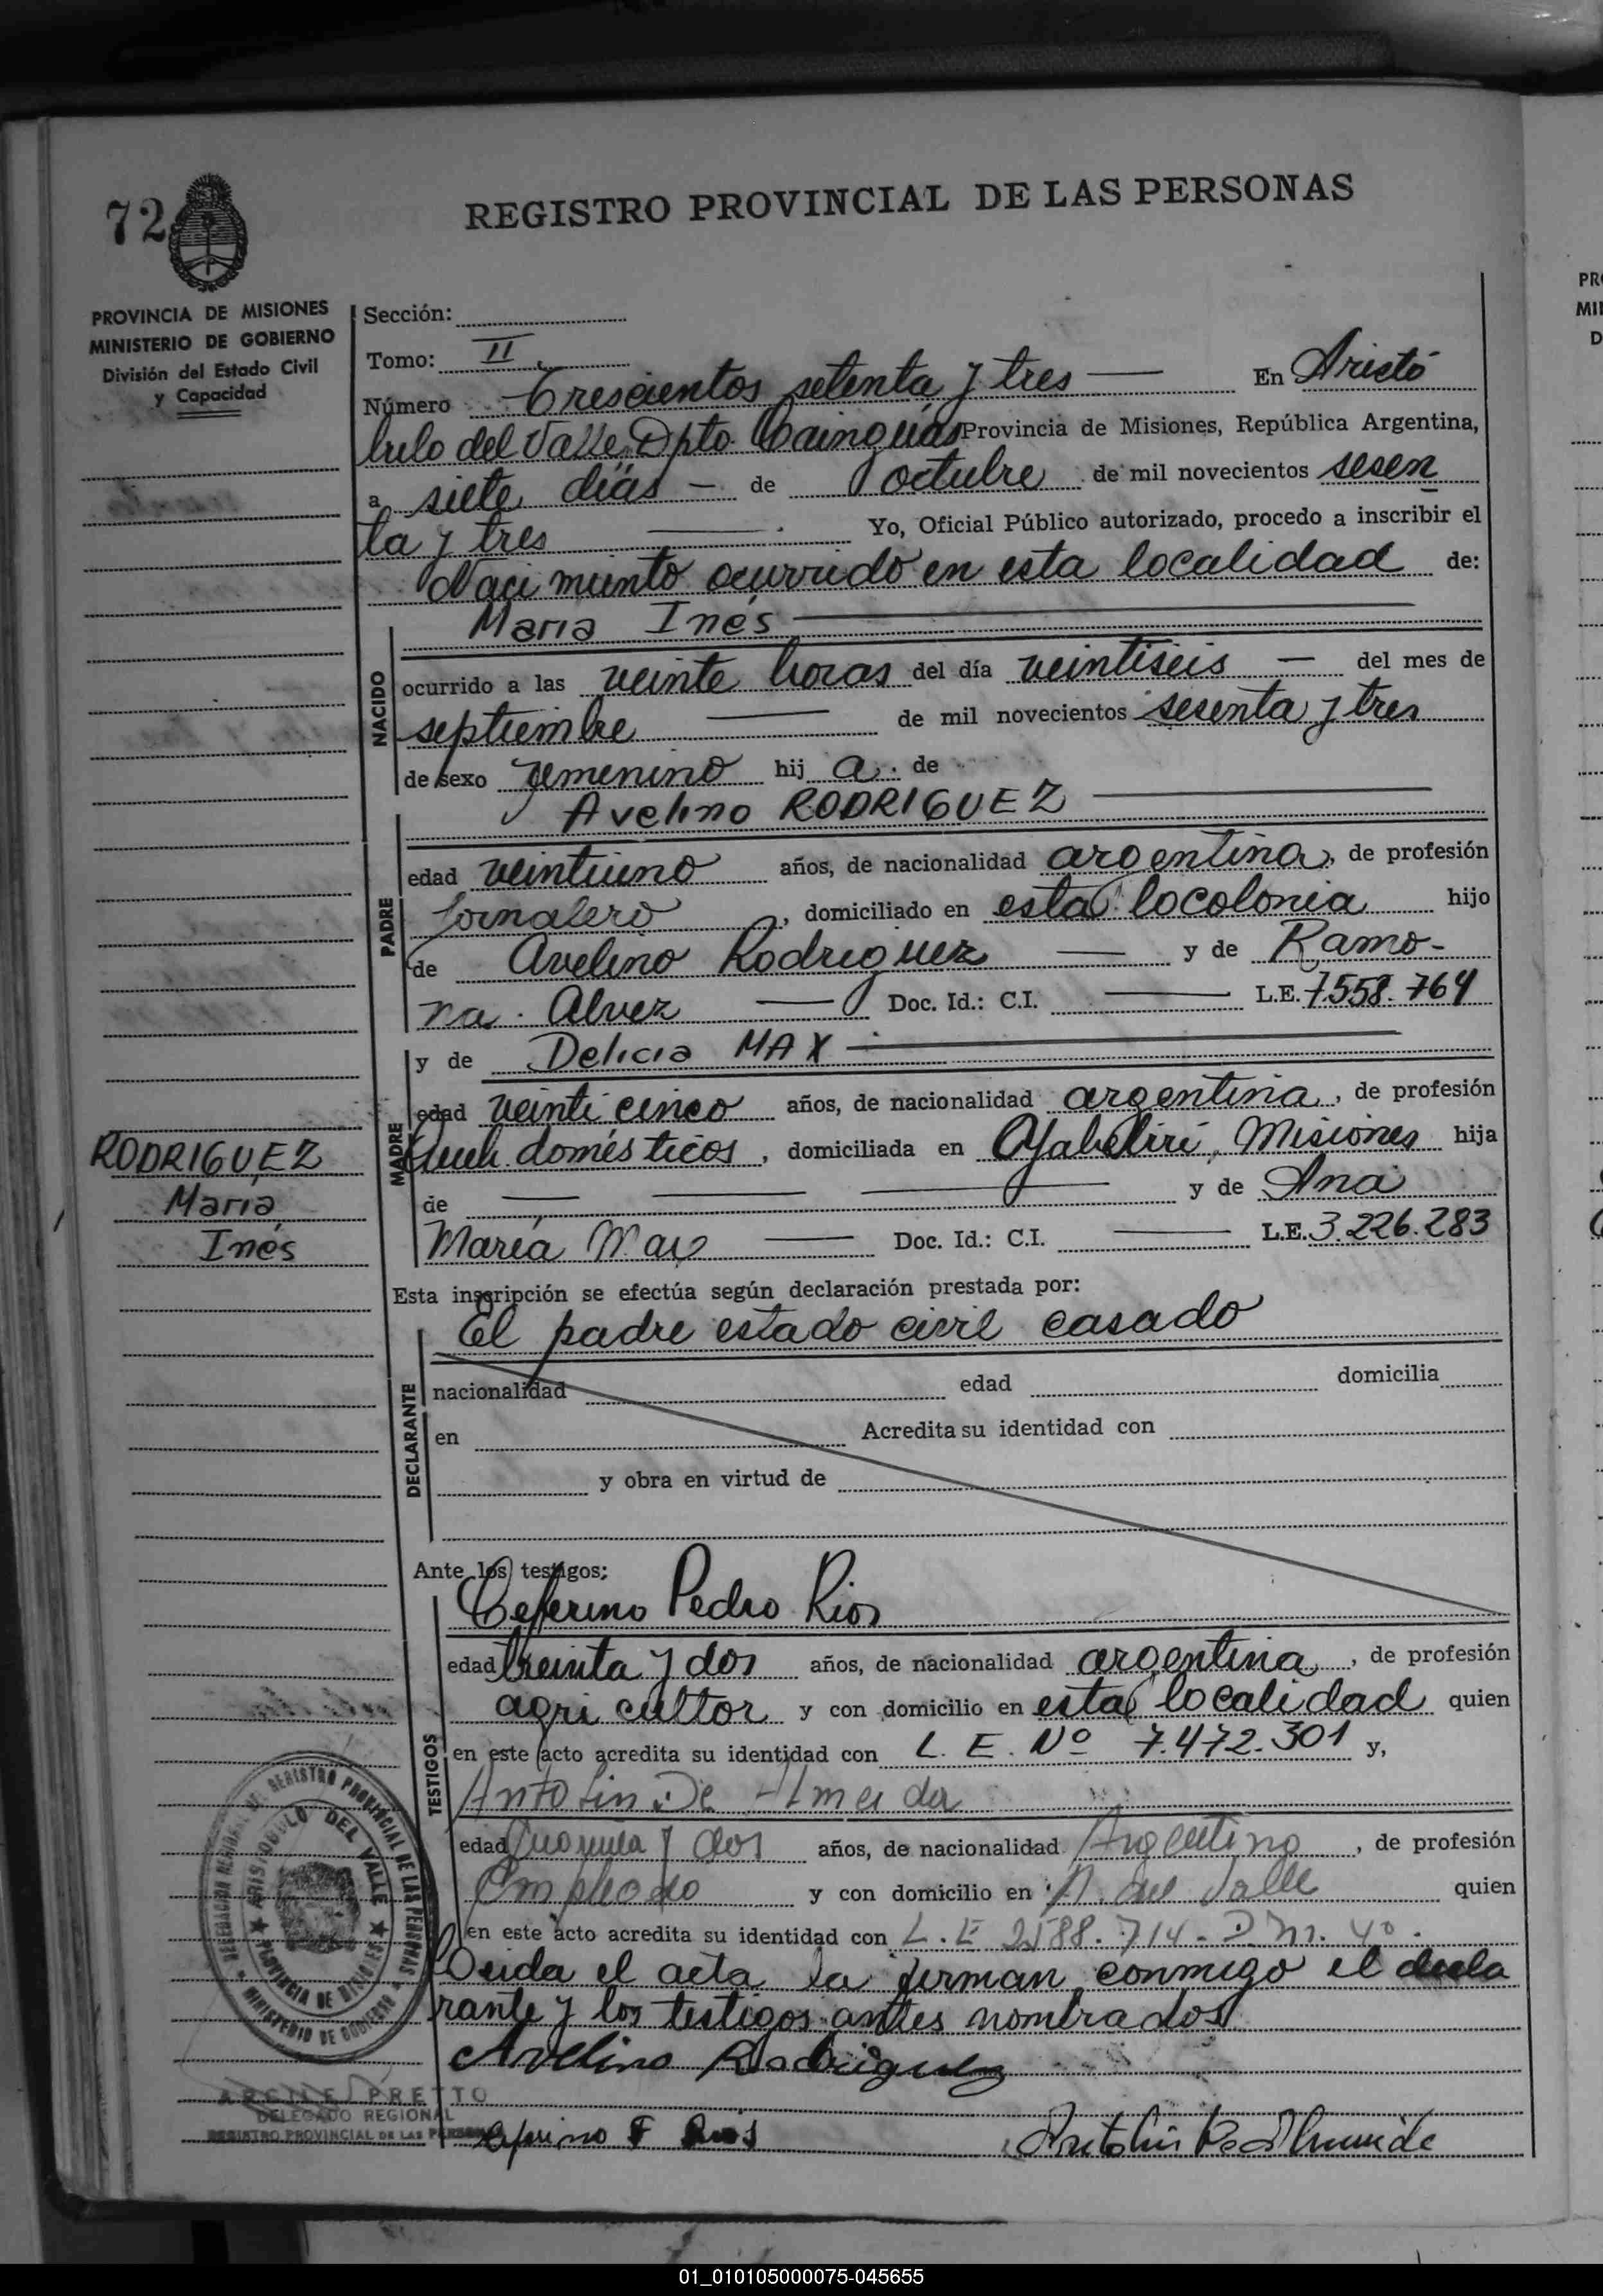 72
REGISTRO PROVINCIAL DE LAS PERSONAS
PROVINCIA DE MISIONES
MINISTERIO DE GOBIERNO
División del Estado Civil
y Capacidad
Sección:
Tomo: II
Número Trescientos setenta y tres — En Aristó
bulo del Valle, Dpto. Cainguás Provincia de Misiones, República Argentina,
a siete días — de octubre de mil novecientos sesen
ta y tres — Yo, Oficial Público autorizado, procedo a inscribir el
Nacimiento ocurrido en esta localidad de:
NACIDO
Maria Inés —
ocurrido a las veinte horas del día veintiseis — del mes de
septiembre — de mil novecientos sesenta y tres
de sexo femenino hij a. de
PADRE
Avelino RODRIGUEZ —
edad veintiuno años, de nacionalidad argentina, de profesión
Jornalero, domiciliado en esta locolonia hijo
de Avelino Rodriguez — y de Ramo-
na. Alvez — Doc. Id.: C.I. — L.E. 7.558.764
MADRE
y de Delicia MAX —
edad veinticinco años, de nacionalidad argentina, de profesión
Queh. domésticos, domiciliada en Yabebiri, Misiones hija
de — — — y de Ana
María Max — Doc. Id.: C.I. — L.E. 3.226.283
RODRIGUEZ
Maria
Inés
Esta inscripción se efectúa según declaración prestada por:
DECLARANTE
El padre estado civil casado
nacionalidad edad domicilia
en Acredita su identidad con
y obra en virtud de
Ante los testigos:
TESTIGOS
Ceferino Pedro Rios
edad treinta y dos años, de nacionalidad argentina, de profesión
agricultor y con domicilio en esta localidad quien
en este acto acredita su identidad con L. E. Nº 7.472.301 y,
Antolin De Almeida
edad Cuarenta y dos años, de nacionalidad Argentino, de profesión
Empleado y con domicilio en A. del Valle quien
en este acto acredita su identidad con L. E 2588.714 - D. M. 4º.
Leida el acta la firman conmigo el decla
rante y los testigos antes nombrados
Avelino Rodriguez
REGISTRO PROVINCIAL DE LAS PERSONAS
ARISTOBULO DEL VALLE
PROVINCIA DE MISIONES
MINISTERIO DE GOBIERNO
PRETTO
DELEGADO REGIONAL
REGISTRO PROVINCIAL DE LAS PERSONAS
01_010105000075-045655